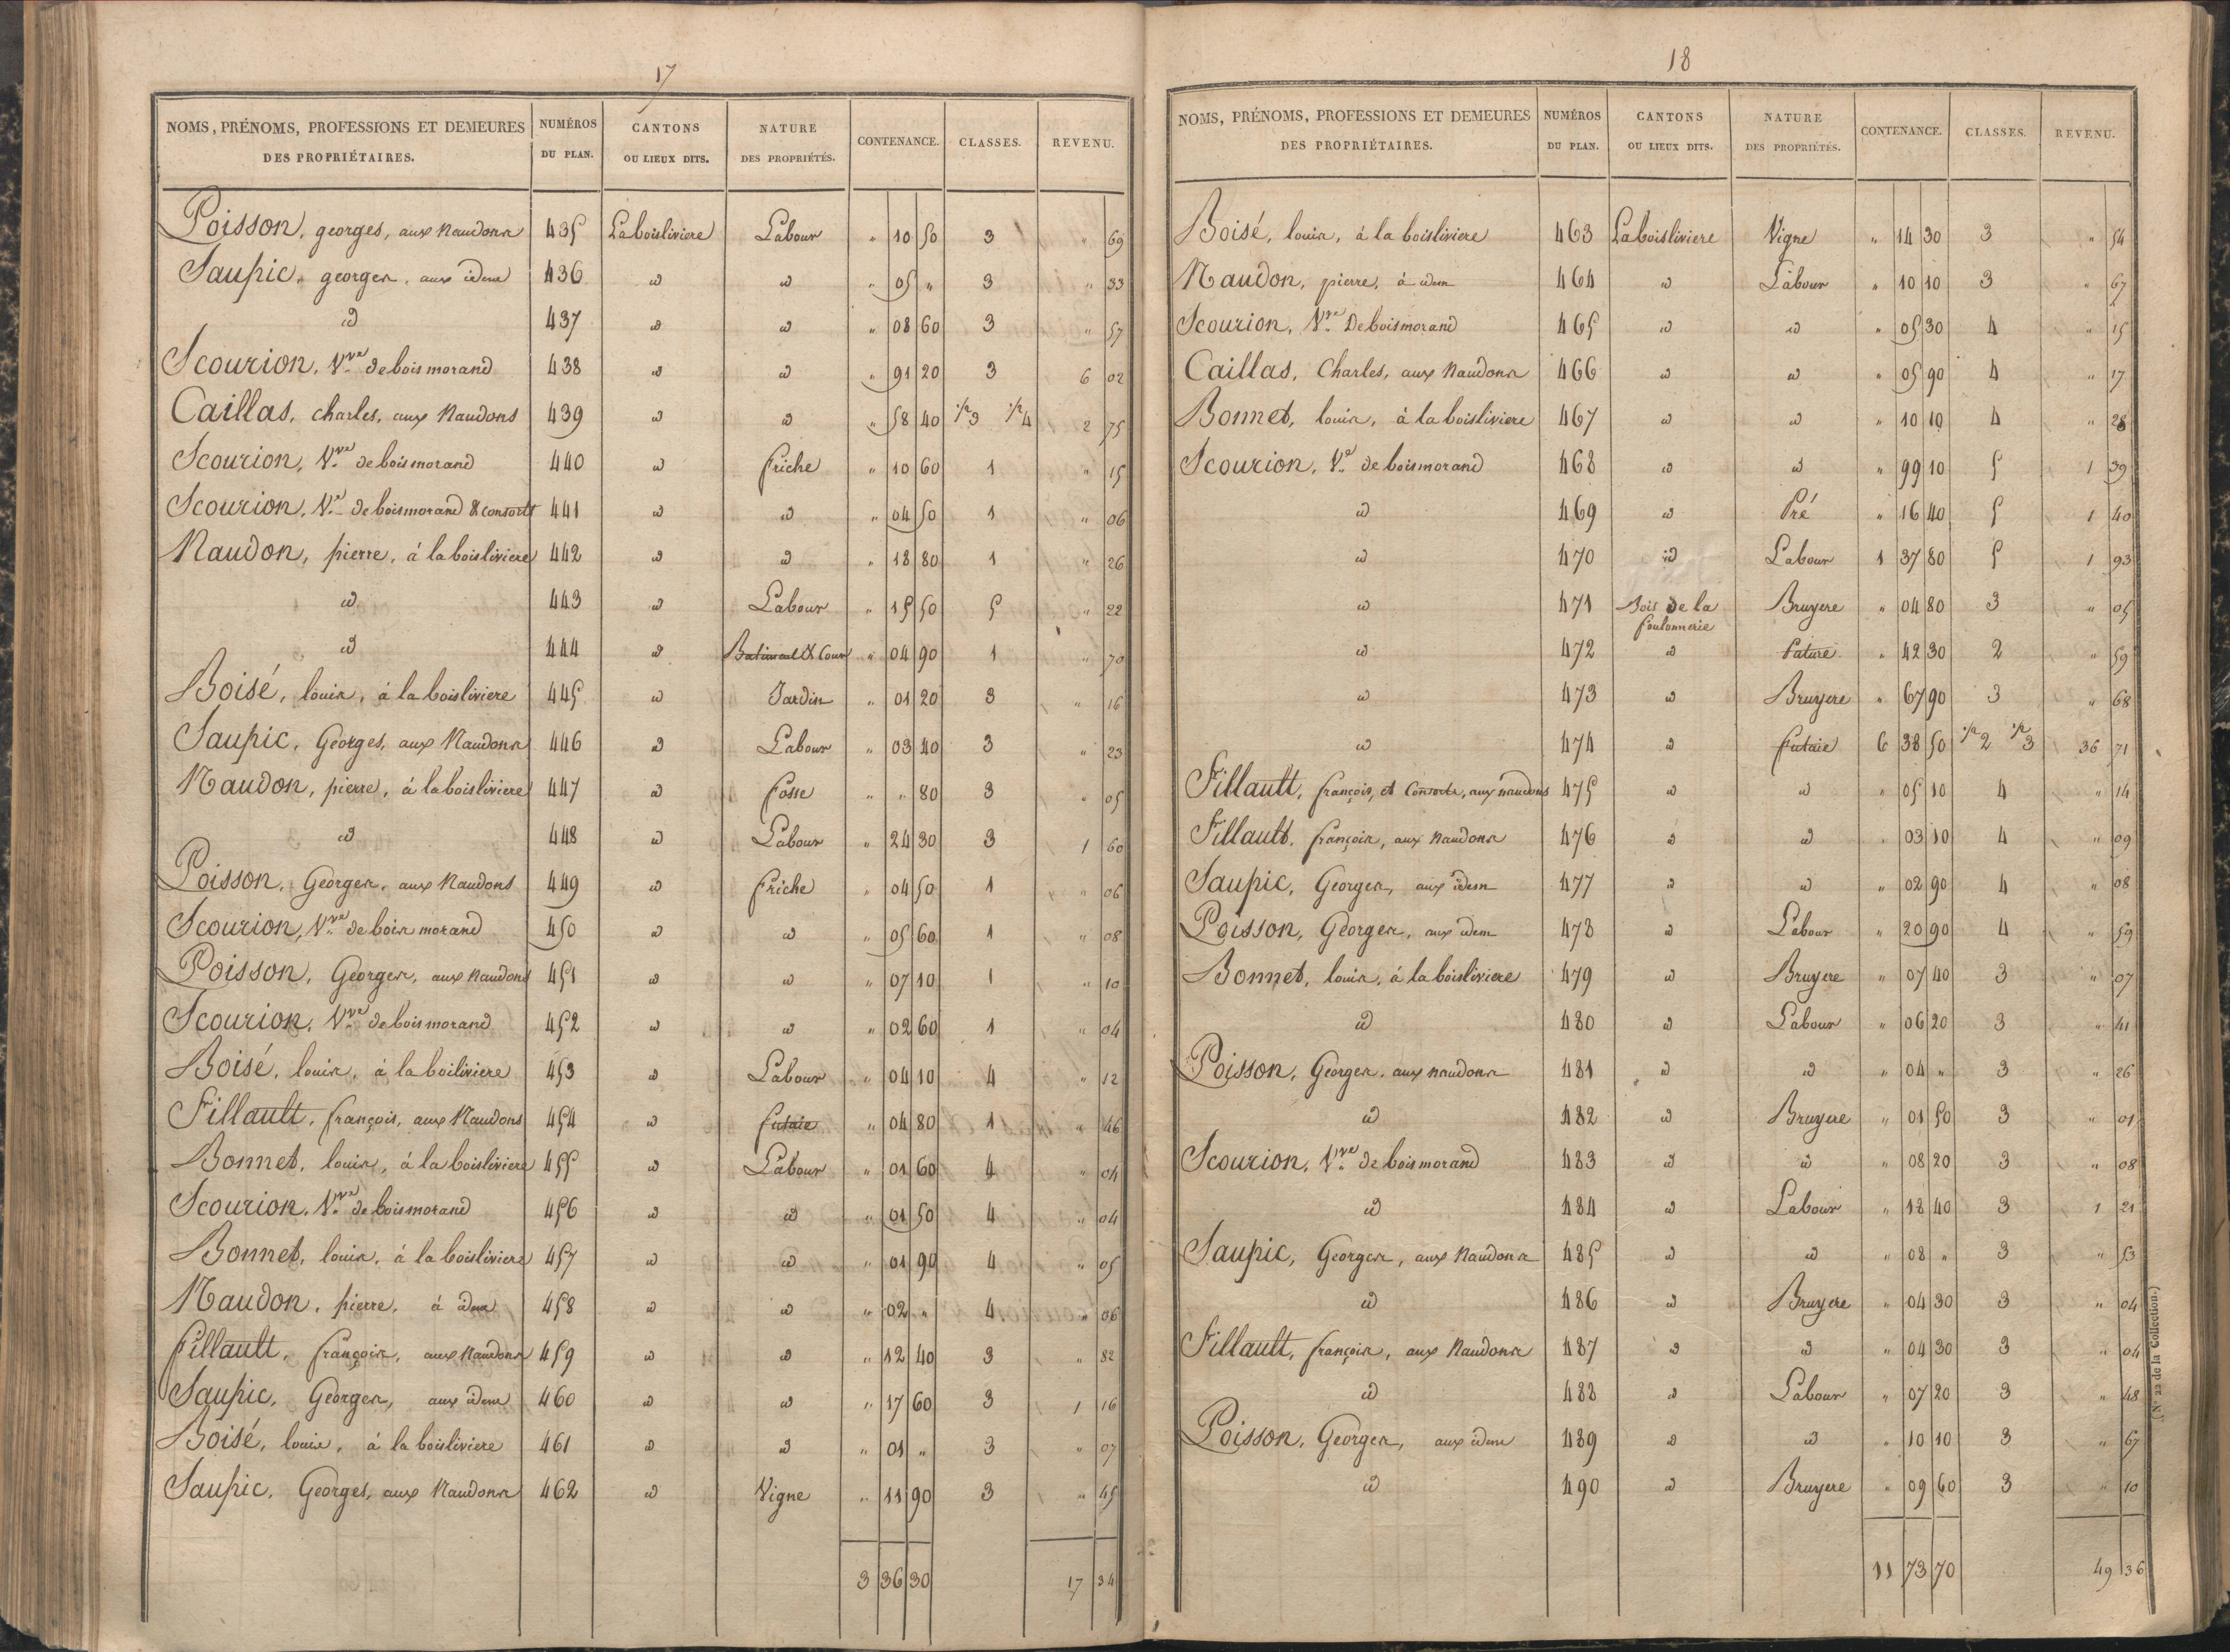 17
NOMS, PRÉNOMS, PROFESSIONS ET DEMEURES DES PROPRIÉTAIRES. NUMÉROS DU PLAN. CANTONS OU LIEUX DITS. NATURE DES PROPRIÉTÉS. CONTENANCE. CLASSES. REVENU.
Poisson, georges, aux Naudons 435 Laboisliviere Labour " 10 50 3 " 69
Saupic, georges, aux idem 436 id id " 05 " 3 " 33
id 437 id id " 08 60 3 " 57
Scourion, Vve de bois morand 438 id id " 91 20 3 6 02
Caillas, charles, aux Naudons 439 id id " 58 40 1/2 3 1/2 4 2 75
Scourion, Vve de boismorand 440 id friche " 10 60 1 " 15
Scourion, Ve de boismorand & consorts 441 id id " 04 50 1 " 06
Naudon, pierre, á la boisliviere 442 id id " 18 80 1 " 26
id 443 id Labour " 15 50 5 " 22
id 444 id Batiment & Cour " 04 90 1 " 70
Boisé, louis, á la boisliviere 445 id Jardin " 01 20 3 " 16
Saupic, Georges, aux Naudons 446 id Labour " 03 40 3 " 23
Naudon, pierre, á la boisliviere 447 id fosse " " 80 3 " 05
id 448 id Labour " 24 30 3 1 60
Poisson, Georges, aux Naudons 449 id friche " 04 50 1 " 06
Scourion, Vve de bois morand 450 id id " 05 60 1 " 08
Poisson, Georges, aux Naudons 451 id id " 07 10 1 " 10
Scourion, Vve de bois morand 452 id id " 02 60 1 " 04
Boisé, louis, á la boiliviere 453 id Labour " 04 10 4 " 12
Fillault, françois, aux Naudons 454 id futaie " 04 80 1 " 46
Bonnet, louis, á la boisliviere 455 id Labour " 01 60 4 " 04
Scourion, Vve de boismorand 456 id id " 01 50 4 " 04
Bonnet, louis, á la boisliviere 457 id id " 01 90 4 " 05
Naudon, pierre, á idem 458 id id " 02 " 4 " 06
fillault, françois, aux Naudons 459 id id " 12 40 3 " 82
Saupic, Georges, aux idem 460 id id " 17 60 3 1 16
Boisé, louis, á la boisliviere 461 id id " 01 " 3 " 07
Saupic, Georges, aux Naudons 462 id Vigne " 11 90 3 " 45
3 36 30 17 34
18
NOMS, PRÉNOMS, PROFESSIONS ET DEMEURES DES PROPRIÉTAIRES. NUMÉROS DU PLAN. CANTONS OU LIEUX DITS. NATURE DES PROPRIÉTÉS. CONTENANCE. CLASSES. REVENU.
Boisé, louis, á la boisliviere 463 Laboisliviere Vigne " 14 30 3 " 54
Naudon, pierre, á idem 464 id Labour " 10 10 3 " 67
Scourion, Vve De boismorand 465 id id " 05 30 4 " 15
Caillas, Charles, aux Naudons 466 id id " 05 90 4 " 17
Bonnet, louis, á la boisliviere 467 id id " 10 10 4 " 28
Scourion, Ve de boismorand 468 id id " 99 10 5 1 39
id 469 id Pré " 16 40 5 1 40
id 470 id Labour 1 37 80 5 1 93
id 471 Bois de la foulonnerie Bruyere " 04 80 3 " 05
id 472 id Pature " 42 30 2 " 59
id 473 id Bruyere " 67 90 3 " 68
id 474 id futaie 6 38 50 1/2 2 1/2 3 36 71
Fillault, françois, et Consorts, aux naudons 475 id id " 05 10 4 " 14
Fillault, françois, aux Naudons 476 id id " 03 10 4 " 09
Saupic, Georges, aux idem 477 id id " 02 90 4 " 08
Poisson, Georges, aux idem 478 id Labour " 20 90 4 " 59
Bonnet, louis, á la boisliviere 479 id Bruyere " 07 40 3 " 07
id 480 id Labour " 06 20 3 " 41
Poisson, Georges, aux naudons 481 id id " 04 " 3 " 26
id 482 id Bruyere " 01 50 3 " 01
Scourion, Vve de bois morand 483 id id " 08 20 3 " 08
id 484 id Labour " 18 40 3 1 21
Saupic, Georges, aux Naudons 485 id id " 08 " 3 " 53
id 486 id Bruyere " 04 30 3 " 04
Fillault, françois, aux Naudons 487 id id " 04 30 3 " 04
id 488 id Labour " 07 20 3 " 48
Poisson, Georges, aux idem 489 id id " 10 10 3 " 67
id 490 id Bruyere " 09 60 3 " 10
11 73 70 49 36
(N° 22 de la Collection.)